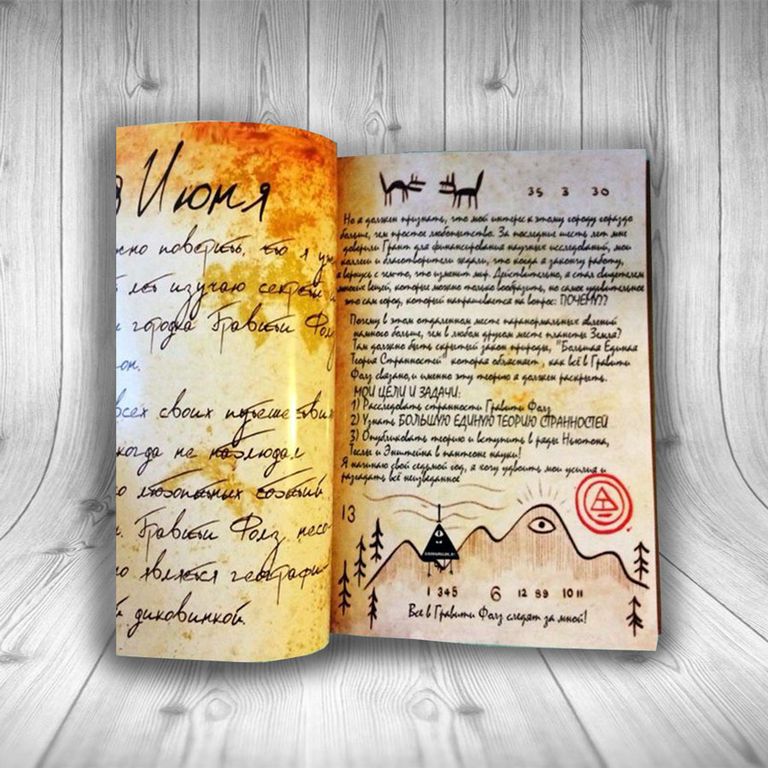 Июня
но поверить, что я уже
лет изучаю секреты
городка Гравити Фолз
он.
всех своих путешествий
когда не наблюдал
о любопытных событий
Гравити Фолз несо
о является географи
й диковинкой.
35 3 30
Но я должен признать, что мой интерес к этому городу гораздо
больше, чем простое любопытство. За последние шесть лет мне
доверили Грант для финансирования научных исследований, мои
коллеги и благотворители ждали, что когда я закончу работу,
я вернусь с чем-то, что изменит мир. Действительно, я стал свидетелем
многих вещей, которые можно только вообразить, но самое удивительное
это сам город, который напрашивается на вопрос: ПОЧЕМУ??
Почему в этом отдаленном месте паранормальных явлений
намного больше, чем в любом другом месте планеты Земля?
Там должно быть скрытый закон природы, "Большая Единая
Теория Странностей" которая объясняет, как всё в Гравити
Фолз связано, и именно эту теорию я должен раскрыть.
МОИ ЦЕЛИ И ЗАДАЧИ:
1) Расследовать странности Гравити Фолз
2) Узнать БОЛЬШУЮ ЕДИНУЮ ТЕОРИЮ СТРАННОСТЕЙ
3) Опубликовать теорию и вступить в ряды Ньютона,
Теслы и Энштейна в пантеоне науки!
Я начинаю свой седьмой год, я хочу удвоить мои усилия и
разгадать всё неизведанное
13
1 345 6 12 89 10 11
Все в Гравити Фолз следят за мной!